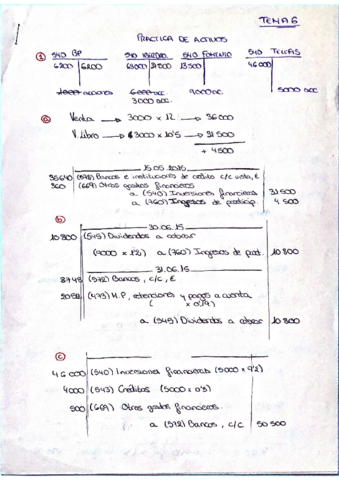 TEMA 6
PRACTICA DE ACTIVOS
① 540 BP 540 540 FOMENTO 540 TEXAS
6200 6200 63000 31500 13500 46000
acciones 6000 acc 9000 acc 5000 acc
3000 acc.
a Venta → 3000 x 12 → 36000
V. Libro → 3000 x 10'5 → 31500
+ 4500
15.05.2015
35640 (572) Bancos e instituciones de crédito c/c vista, €
360 (669) Otros gastos financieros
a (540) Inversiones financieras 31 500
a (760) Ingresos de particip. 4 500
b
30.06.15
10 800 (545) Dividendos a cobrar
(9000 x 1'2) a (760) Ingresos de part. 10 800
31.06.15
8748 (572) Bancos, c/c, €
2052 (473) H.P, retenciones y pagos a cuenta
( x 0,19)
a (545) Dividendos a cobrar 10 800
c
46 000 (540) Inversiones financieras (5000 x 9'2)
4000 (543) Créditos (5000 x 0'8)
500 (669) Otros gastos financieros.
a (572) Bancos, c/c 50 500